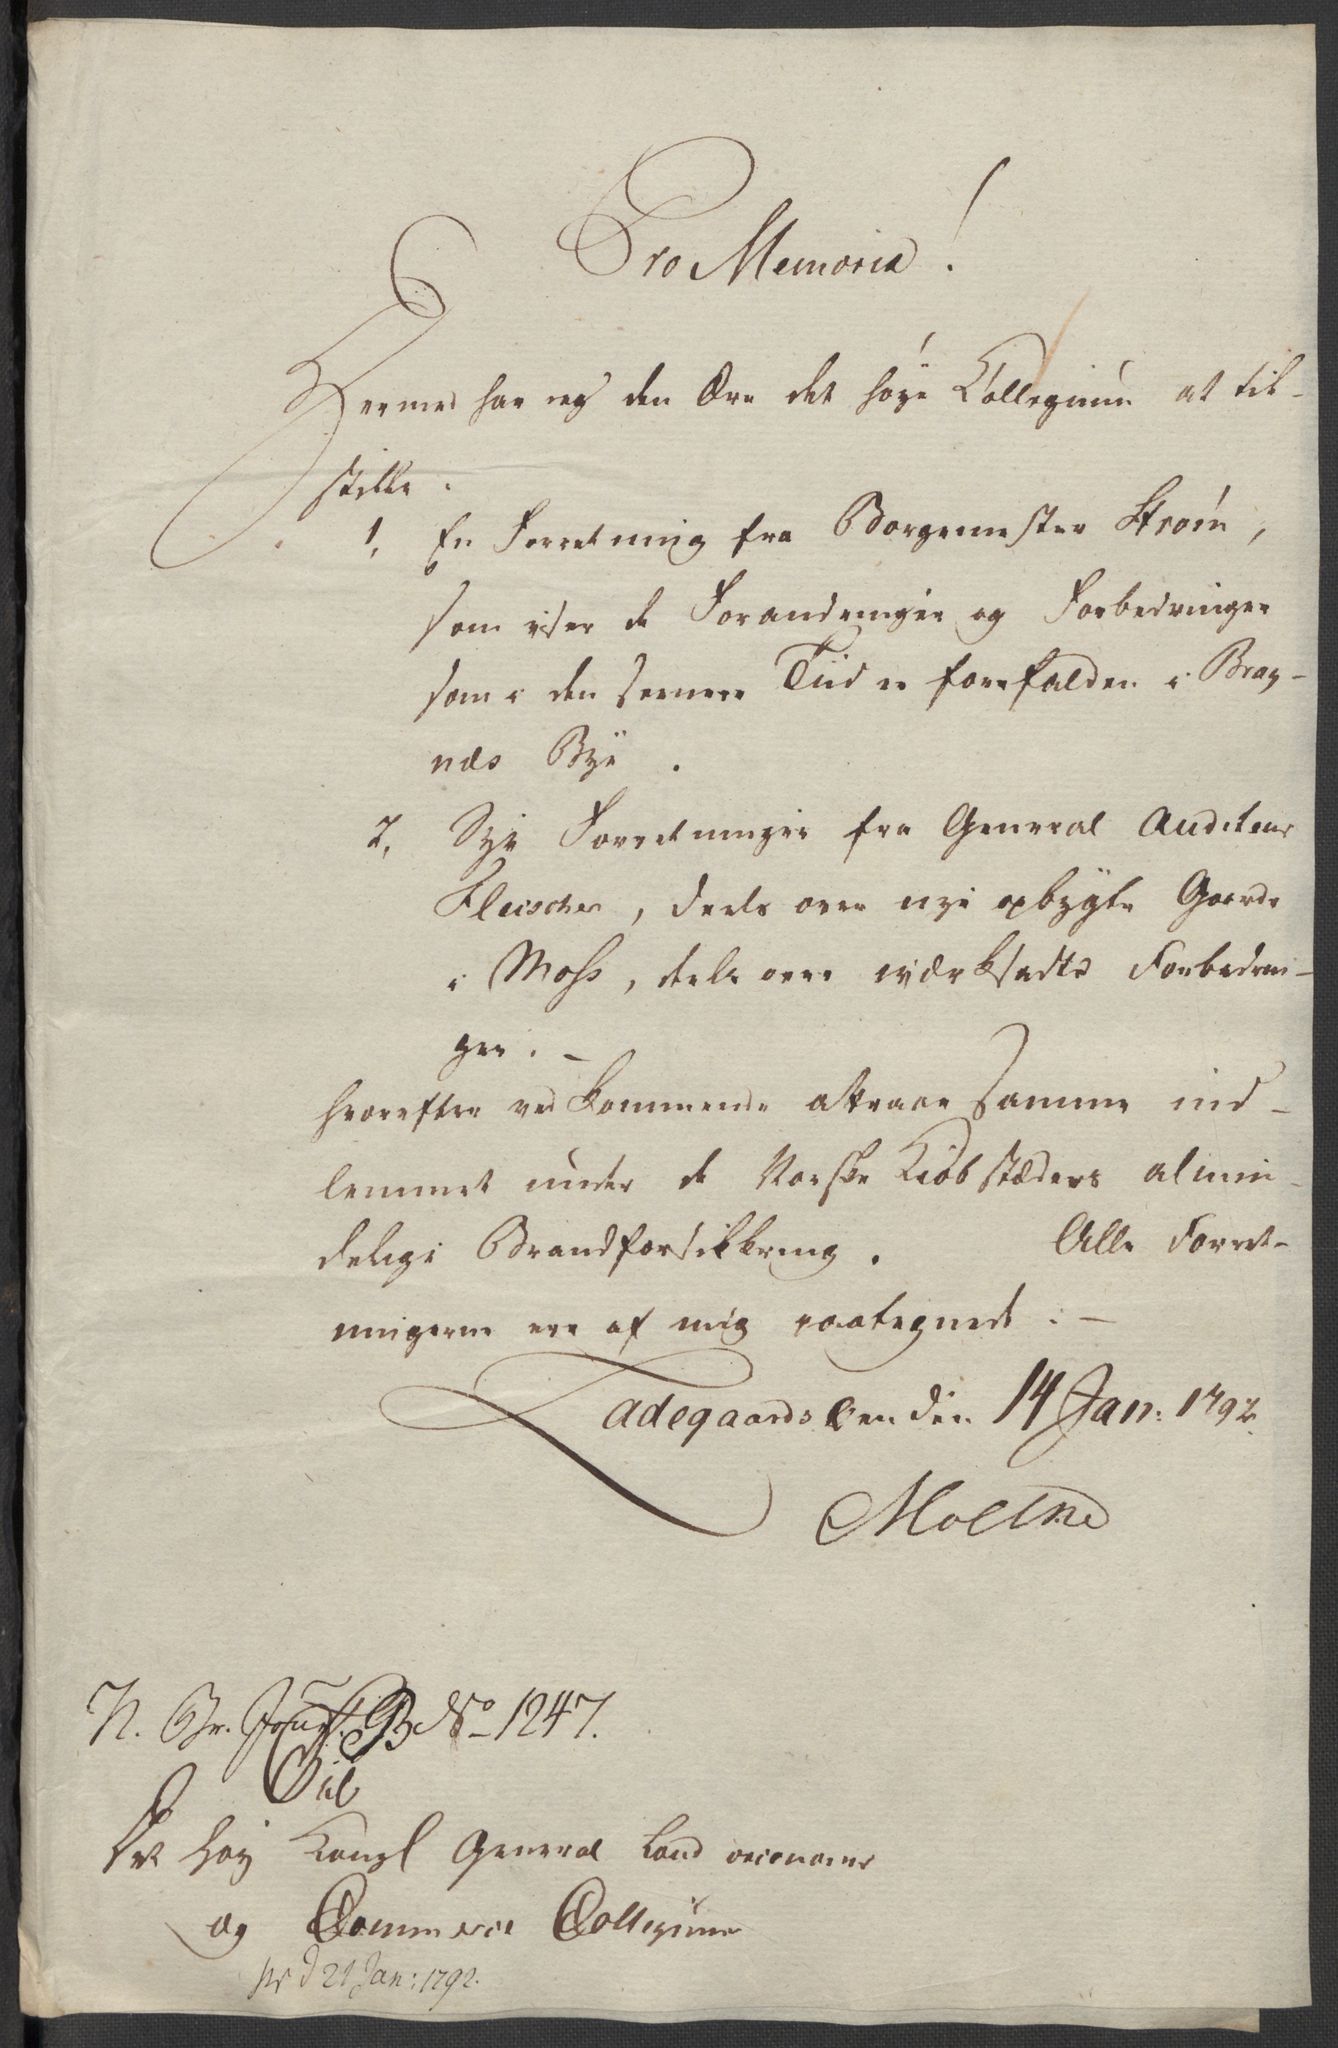 Pro Memoria!
Hermed har ieg den Ære det høye Collegium at til-
stille:
1, En Forretning fra Borgemester Strøm,
som viser de Forandringer og Forbedringer
som i den seenere Tiid er forefalden i Brag-
næs Bye.
2, Syv Forretninger fra General Auditeur
Fleischer, deels over nye opbygte Gaarde
i Moss, dels over iværksadte Forbedrin-
ger. -
hvorefter vedkommende attraaer samme ind-
lemmet under de Norske Kiøbstæders almin-
delige Brandforsikkring. Alle Forret-
ningerne ere af mig paategnede. -
Ladegaardsøen den 14 Jan: 1792.
Moltke
N. Br. Jour. B No 1247.
Til
Det høy Kongl General Land oeconomie
og Commerce Collegium
pr d 21 Jan: 1792.